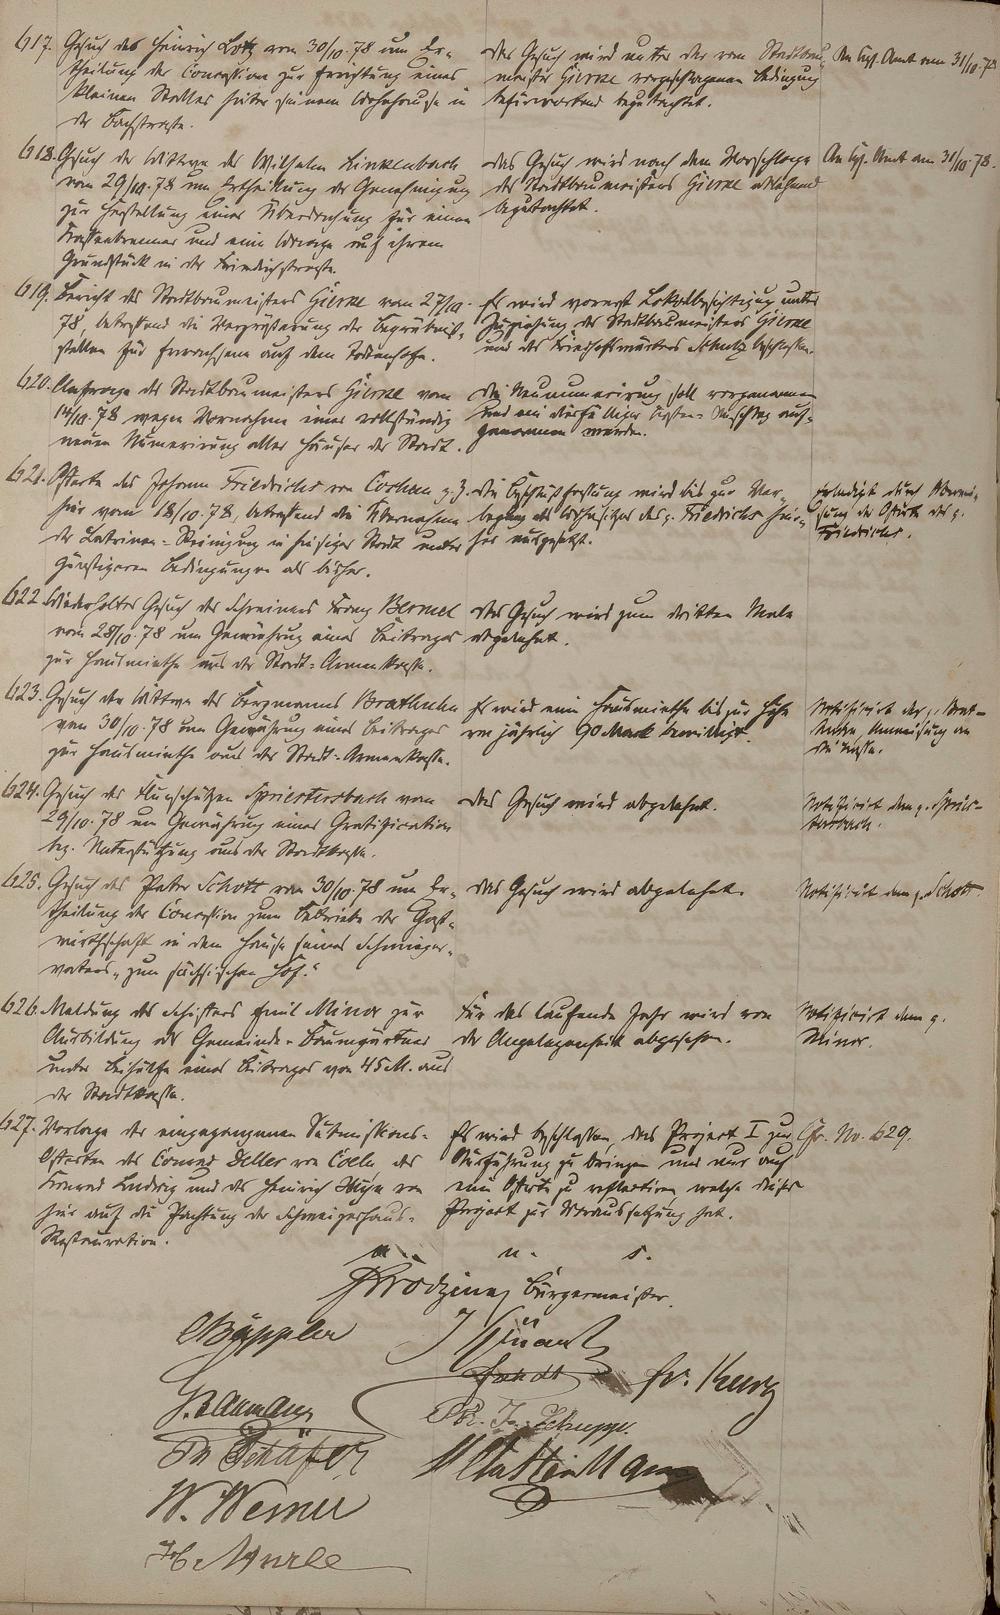 617. Gesuch des Heinrich Lotz vom 30/10.78 um Er-
theilung der Concession zur Errichtung eines
kleinen Stalles hinter seinem Wohnhause in
der Bachstrasse.
Das Gesuch wird unter der vom Stadtbau-
meister Gierke vorgeschlagenen Bedingung
befürwortend begutachtet.
An Kgl. Amt am 31/10.78
618. Gesuch der Wittwe des Wilhelm Linkenbach
vom 29/10.78 um Ertheilung der Genehmigung
zur Herstellung einer Überdachung für einen
und eine Waage auf ihrem
Grundstück in der Friedrichstrasse.
Das Gesuch wird nach dem Vorschlage
des Stadtbaumeisters Gierke ablehnend
begutachtet.
An Kgl. Amt am 31/10.78.
619. Bericht des Stadtbaumeisters Gierke vom 27/10.
78, betreffend die Vergrößerung der Begräbniß-
stellen für Erwachsene auf dem Todtenhofe.
Es wird vorerst Lokalbesichtigung unter
Zuziehung des Stadtbaumeisters Gierke
und des Friedhofswärters Schutz beschlossen.
620. Anfrage des Stadtbaumeisters Gierke vom
14/10.78 wegen Vornahme einer vollständig
neuen Numerirung aller Häuser der Stadt.
Die Neunumerirung soll vorgenommen
und ein Kosten-Anschlag auf-
genommen werden.
621. Offerte des Johann Friedrichs von Cochem z. Z.
hier vom 18/10.78, betreffend die Übernahme
der Latrinen-Reinigung in hiesiger Stadt unter
günstigeren Bedingungen als bisher.
Die Beschlußfassung wird bis zur Ver-
legung des Wohnsitzes des p. Friedrichs hier-
her ausgesetzt.
erledigt durch
der Offerte des p.
Friedrichs.
622. Wiederholtes Gesuch des Schreiners Franz Bermel
vom 28/10.78 um Gewährung eines Beitrages
zur Hausmiethe aus der Stadt-Armenkasse.
Das Gesuch wird zum dritten Male
abgelehnt.
623. Gesuch der Wittwe des Bergmanns Brathuhn
vom 30/10.78 um Gewährung eines Beitrages
zur Hausmiethe aus der Stadt-Armenkasse.
Es wird eine Hausmiethe bis zur Höhe
von jährlich 90 Mark bewilligt.
Notificirt der p. Brat-
huhn, Anweisung an
die Kasse.
624. Gesuch des Flurschützen Spriestersbach vom
29/10.78 um Gewährung einer Gratification
bez. Unterstützung aus der Stadtkasse.
Das Gesuch wird abgelehnt.
Notificirt dem p. Spries-
tersbach.
625. Gesuch des Peter Schott vom 30/10.78 um Er-
theilung der Concession zum Betriebe der Gast-
wirthschaft in dem Hause seines Schwieger-
vaters „zum sächsischen Hof.“
Das Gesuch wird abgelehnt.
Notificirt dem p. Schott
626. Meldung des Schülers Emil Minor zur
Ausbildung als Gemeinde-Baumgärtner
unter Beihülfe eines Beitrages von 45 M. aus
der Stadtkasse.
Für das laufende Jahr wird von
der Angelegenheit abgesehen.
Notificirt dem p.
Minor.
627. Vorlage der eingegangenen Submissions-
Offerten des Conrad Deller von Coeln, des
Konrad Ludwig und des Heinrich von
hier auf die Pachtung der Schweizerhaus-
Restauration.
Es wird beschlossen, das Project I zur
Ausführung zu bringen und nur auf
eine Offerte zu reflectiren, welche dieses
Project zur Voraussetzung hat.
Cfr. No. 629.
a. u. s.
Bürgermeister.
Fr. Kurtz
Th Schäfer
W. Werner